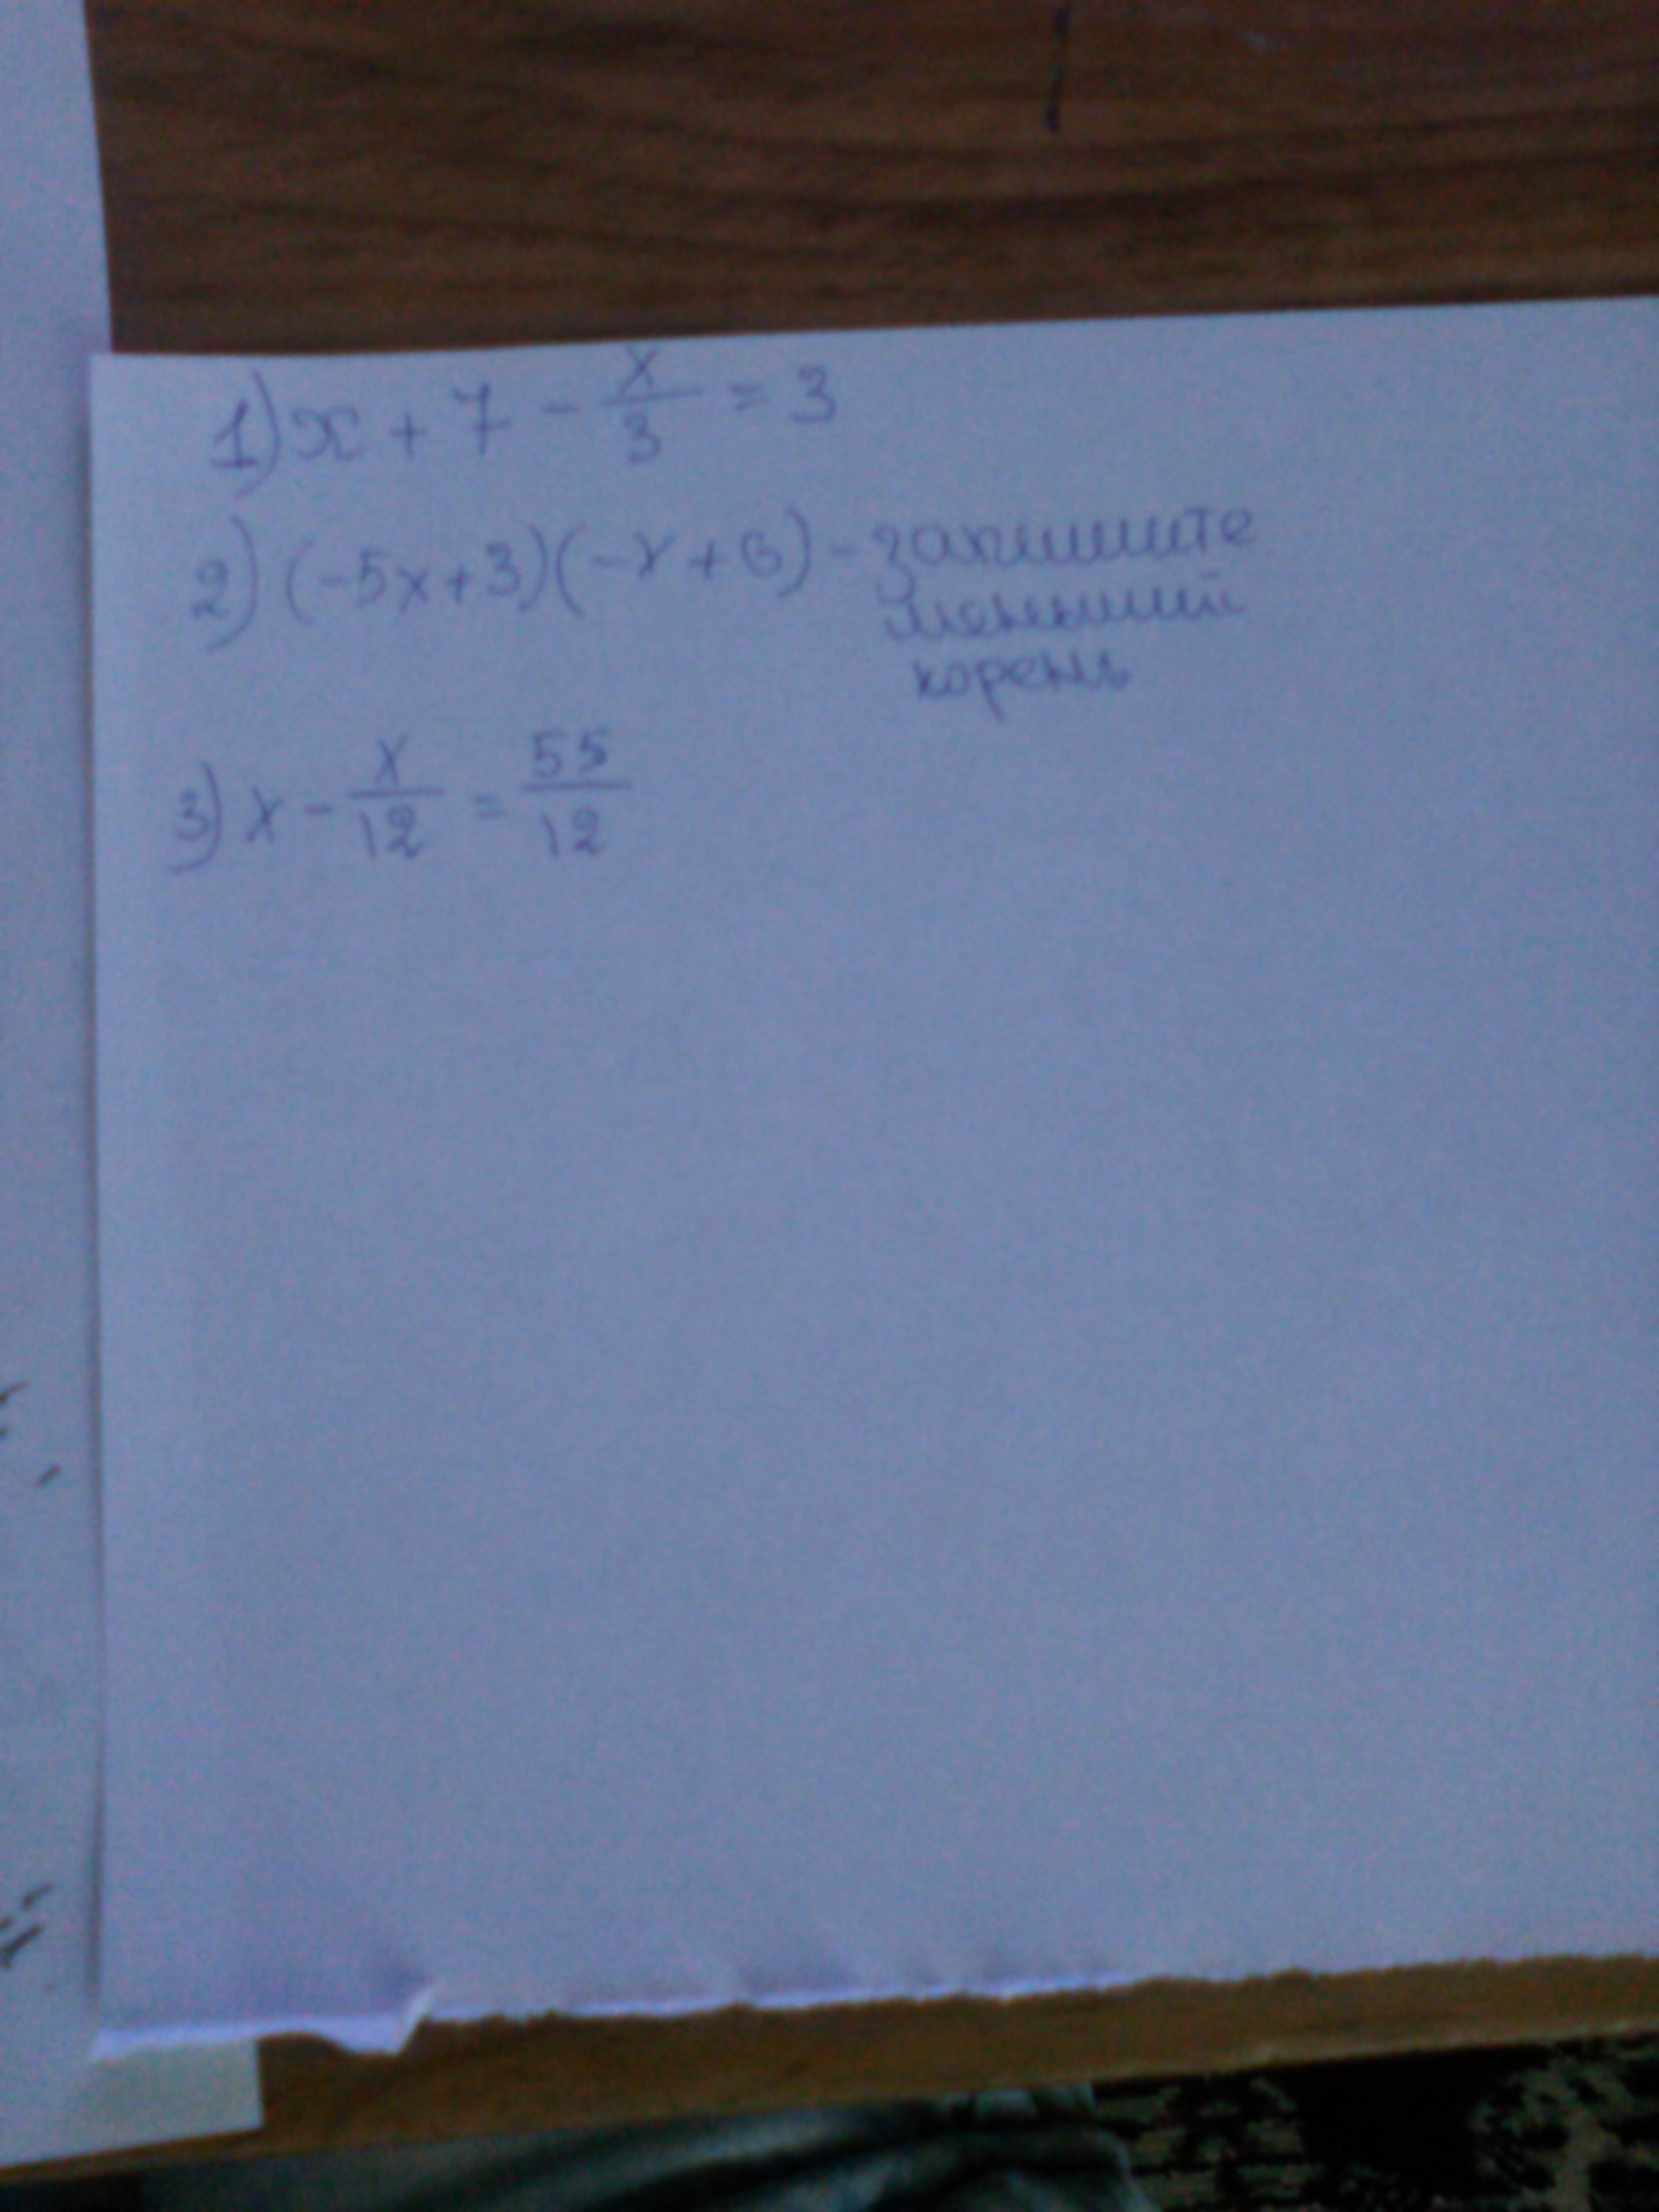 1) x + 7 - x/3 = 3
2) (-5x+3)(-x+6) - запишите
меньший
корень
3) x - x/12 = 55/12